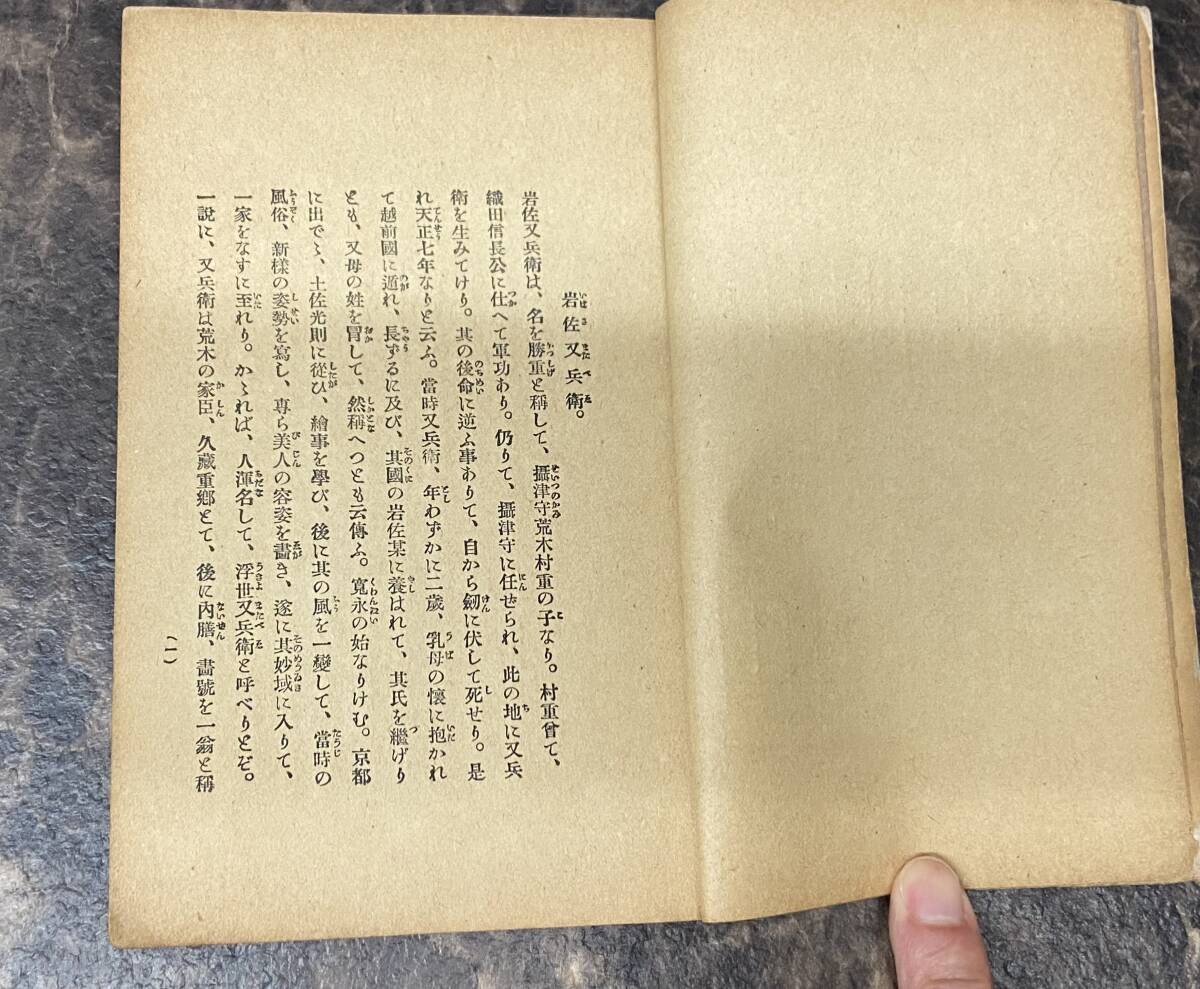 岩佐又兵衛。
岩佐又兵衛は、名を勝重と稱して、攝津守荒木村重の子なり。村重曾て、
織田信長公に仕へて軍功あり。仍りて、攝津守に任せられ、此の地に又兵
衛を生みてけり。其の後命に逆ふ事ありて、自から劒に伏して死せり。是
れ天正七年なりと云ふ。當時又兵衛、年わずかに二歳、乳母の懷に抱かれ
て越前國に遁れ、長ずるに及び、其國の岩佐某に養はれて、其氏を繼げり
とも、又母の姓を冒して、然稱へつとも云傳ふ。寬永の始なりけむ。京都
に出でゝ、土佐光則に從ひ、繪事を學び、後に其の風を一變して、當時の
風俗、新樣の姿勢を寫し、專ら美人の容姿を畵き、遂に其妙域に入りて、
一家をなすに至れり。かゝれば、人渾名して、浮世又兵衛と呼べりとぞ。
一說に、又兵衛は荒木の家臣、久藏重鄕とて、後に内膳、畵號を一翁と稱
(一)